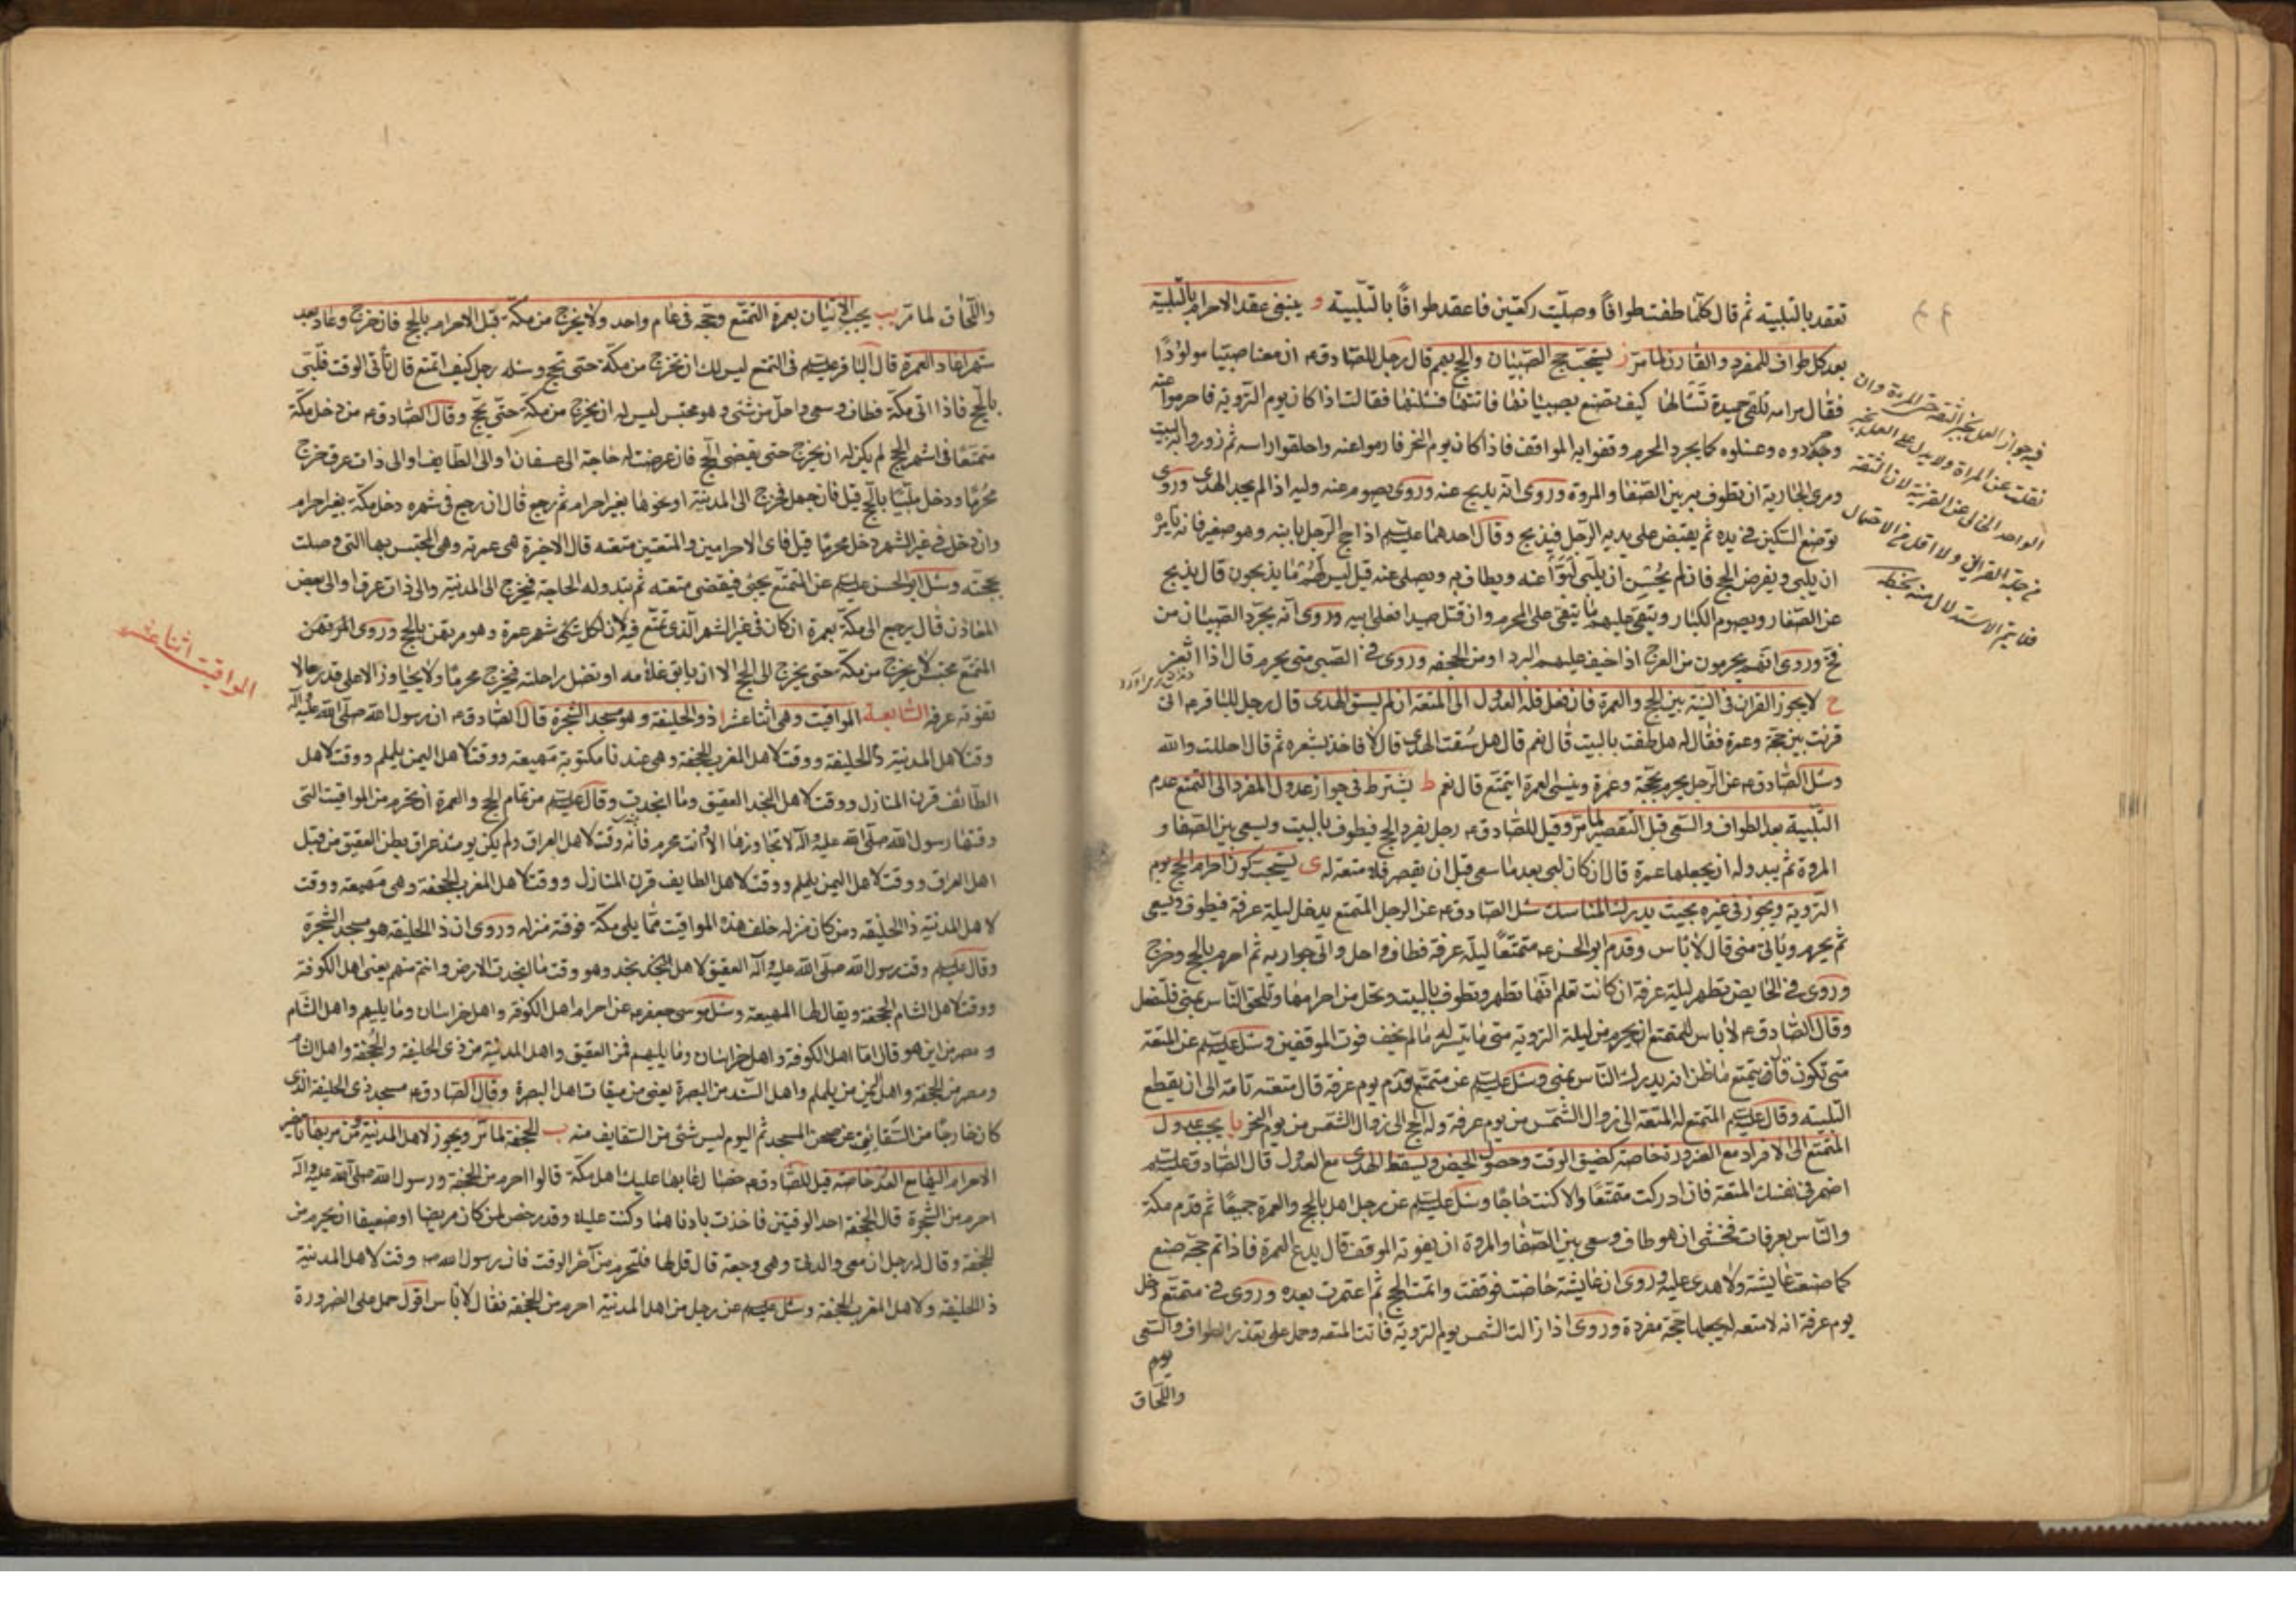 تعقد بالتلبية ثم قال كلما طفت طوافًا وصليت ركعتين فاعقد طوافًا بالتلبية و ينبغى عقد الاحرام بالتلبية
بعد كل طواف للمفرد والقارن لما مر ز يستحب حج الصبيان والحج بهم قال رجل للصادق ع ان معنا صبيا مولودًا
فقال مر امه تلقى حميدة تسألها كيف تصنع بصبيانها فاتتها فسئلتها فقالت اذا كان يوم التروية فاحرموا عنه
وجردوه وغسلوه كما يجرد المحرم وقفوا به المواقف فاذا كان يوم النحر فارموا عنه واحلقوا راسه ثم زوروا به البيت
ومرى الجارية ان تطوف به بين الصفا والمروة وروى انه يذبح عنه وروى يصوم عنه وليه اذا لم يجد الهدى وروى
توضع السكين فى يده ثم يقبض على يديه الرجل فيذبح وقال احدهما عليه السلام اذا حج الرجل بابنه وهو صغير فانه يأمره
ان يلبى ويفرض الحج فان لم يحسن ان يلبى لبوا عنه ويطاف به ويصلى عنه قيل ليس لهم ما يذبحون قال يذبح
عن الصغار ويصوم الكبار ويتقى عليهم ما يتقى على المحرم وان قتل صيدا فعلى ابيه وروى انه يجرد الصبيان من
فخ وروى انهم يحرمون من العرج اذا خيف عليهم البرد او من الجحفه وروى فى الصبى متى يحرم قال اذا اثغر
ح لا يجوز القران فى النية بين الحج والعمرة فان فعل فله العدول الى المتعة ان لم يسق الهدى قال رجل للباقر ع انى
قرنت بين حجة وعمرة فقال له هل طفت بالبيت قال نعم قال هل سقت الهدى قال لا فاخذ بشعره ثم قال احللت والله
وسئل الصادق ع عن الرجل يحرم بحجة وعمرة وينسى العمرة ايتمتع قال نعم ط يشترط فى جواز عدول المفرد الى التمتع عدم
التلبية بعد الطواف والسعى قبل التقصير لما مر وقيل للصادق ع رجل يفرد الحج فيطوف بالبيت ويسعى بين الصفا و
المروة ثم يبدو له ان يجعلها عمرة قال ان كان لبى بعد ما سعى قبل ان يقصر فلا متعة له ى يستحب كون احرام الحج يوم
التروية ويجوز فى غيره بحيث يدرك المناسك سئل الصادق ع عن الرجل المتمتع يدخل ليلة عرفة فيطوف ويسعى
ثم يحرم وياتى منى قال لا باس وقدم ابو الحسن ع متمتعًا ليلة عرفة فطاف واحل واتى جواريه ثم احرم بالحج وخرج
وروى فى الحايض تطهر ليلة عرفة ان كانت تعلم انها تطهر وتطوف بالبيت وتحل من احرامها وتلحق الناس بمنى فلتفعل
وقال الصادق ع لا باس للمتمتع ان يحرم من ليلة التروية متى ما تيسر له ما لم يخف فوت الموقفين وسئل عليه السلام عن المتعة
متى تكون قال يتمتع ما ظن انه يدرك الناس بمنى وسئل عليه السلام عن متمتع قدم يوم عرفة قال متعته تامة الى ان يقطع
التلبيه وقال عليه السلام المتمتع له المتعة الى زوال الشمس من يوم عرفة وله الحج الى زوال الشمس من يوم النحر يا يجب عدول
المتمتع الى الافراد مع الضرورة خاصة كضيق الوقت وحصول الحيض ويسقط الهدى مع العدول قال الصادق عليه السلام
اضمر فى نفسك المتعة فان ادركت متمتعًا والا كنت حاجًا وسئل عليه السلام عن رجل اهل بالحج والعمرة جميعًا ثم قدم مكة
والناس بعرفات فخشى ان هو طاف وسعى بين الصفا والمروة ان يفوته الموقف قال يدع العمرة فاذا اتم حجه صنع
كما صنعت عايشة ولا هدى عليه وروى ان عايشة حاضت فوقفت واتمت الحج ثم اعتمرت بعده وروى فى متمتع دخل
يوم عرفة انه لا متعه له يجعلها حجة مفردة وروى اذا زالت الشمس يوم التروية فاتت المتعه وحمل على تعذر الطواف والسعى
يوم
واللحاق
فيه جواز العمل بخبر الثقة حتى المراة وان
نقلت عن المراة ولا يدل على العمل بخبر
الواحد الخالى عن القرينة لان الثقة
من جملة القراين ولا اقل من الاحتمال
فلا يتم الاستدلال منه بخطه
واللحاق لما مر يب يجب الاتيان بعمرة التمتع وحجه فى عام واحد ولا يخرج من مكة قبل الاحرام بالحج فان خرج وعاد بعد
شهر اعاد العمرة قال الباقر عليه السلام فى التمتع ليس لك ان تخرج من مكة حتى تحج وسئله رجل كيف اتمتع قال تأتى الوقت فتلبى
بالحج فاذا اتى مكة فطاف وسعى واحل من شئ وهو محتبس ليس له ان يخرج من مكة حتى يحج وقال الصادق ع من دخل مكة
متمتعًا فى اشهر الحج لم يكن له ان يخرج حتى يقضى الحج فان عرضت له حاجة الى عسفان او الى الطايف او الى ذات عرق خرج
محرمًا ودخل ملبيًا بالحج قيل فان جهل فخرج الى المدينة او نحوها بغير احرام ثم رجع قال ان رجع فى شهره دخل مكة بغير احرام
وان دخل فى غير الشهر دخل محرمًا قيل فاى الاحرامين والمتعتين متعته قال الاخيرة هى عمرته وهى المحتبس بها التى وصلت
بحجته وسئل ابو الحسن عليه السلام عن المتمتع يجئ فيقضى متعته ثم تبدو له الحاجة فيخرج الى المدينة والى ذات عرق او الى بعض
المعادن قال يرجع الى مكة بعمرة ان كان فى غير الشهر الذى تمتع فيه لان لكل شهر عمرة وهو مرتهن بالحج وروى
المتمتع محتبس لا يخرج من مكة حتى يخرج الى الحج الا ان يابق غلامه او تضل راحلته فيخرج محرمًا ولا يجاوز الا على قدر ما لا
تفوته عرفة السابعة المواقيت وهى اثنا عشر ا ذو الحليفة وهو مسجد الشجرة قال الصادق ع ان رسول الله صلى الله عليه وآله
وقت لاهل المدينة ذا الحليفة ووقت لاهل المغرب الجحفة وهى عندنا مكتوبة مهيعة ووقت لاهل اليمن يلملم ووقت لاهل
الطائف قرن المنازل ووقت لاهل النجد العقيق وما انجدت وقال عليه السلام من تمام الحج والعمرة ان تحرم من المواقيت التى
وقتها رسول الله صلى الله عليه وآله لا تجاوزها الا وانت محرم فانه وقت لاهل العراق ولم يكن يومئذ عراق بطن العقيق من قبل
اهل العراق ووقت لاهل اليمن يلملم ووقت لاهل الطايف قرن المنازل ووقت لاهل المغرب الجحفة وهى مهيعه ووقت
لاهل المدينة ذا الحليفه ومن كان منزله خلف هذه المواقيت مما يلى مكة فوقته منزله وروى ان ذا الحليفه هو مسجد الشجرة
وقال عليه السلام وقت رسول الله صلى الله عليه وآله العقيق لاهل نجد وهو وقت ما انجدت الارض وانتم منهم يعنى اهل الكوفة
ووقت لاهل الشام الجحفة ويقال لها المهيعة وسئل موسى بن جعفر ع عن احرام اهل الكوفة واهل خراسان وما يليهم واهل الشام
و مصر من اين هو قال اما اهل الكوفة واهل خراسان وما يليهم فمن العقيق واهل المدينة من ذى الحليفة والجحفة واهل الشام
ومصر من الجحفة واهل اليمن من يلملم واهل السند من البصرة يعنى من ميقات اهل البصرة وقال الصادق ع مسجد ذى الحليفة الذى
كان خارجًا من السقايف عن صحن المسجد ثم اليوم ليس شئ من السقايف منه ب الجحفة لما مر ويجوز لاهل المدينة ومن مر بها تاخير
الاحرام اليها مع العذر خاصة قيل للصادق ع خصال عابها عليك اهل مكة قالوا احرم من الجحفة ورسول الله صلى الله عليه وآله
احرم من الشجرة قال الجحفة احد الوقتين فاخذت بادناهما وكنت عليلا وقد رخص لمن كان مريضا او ضعيفا ان يحرم من
الجحفة وقال له رجل ان معى والدتى وهى وجعة قال قل لها فلتحرم من آخر الوقت فان رسول الله ص وقت لاهل المدينة
ذا الحليفة ولاهل المغرب الجحفة وسئل عليه السلام عن رجل من اهل المدينة احرم من الجحفة فقال لا باس اقول حمل على الضرورة
المواقيت اثنا عشر